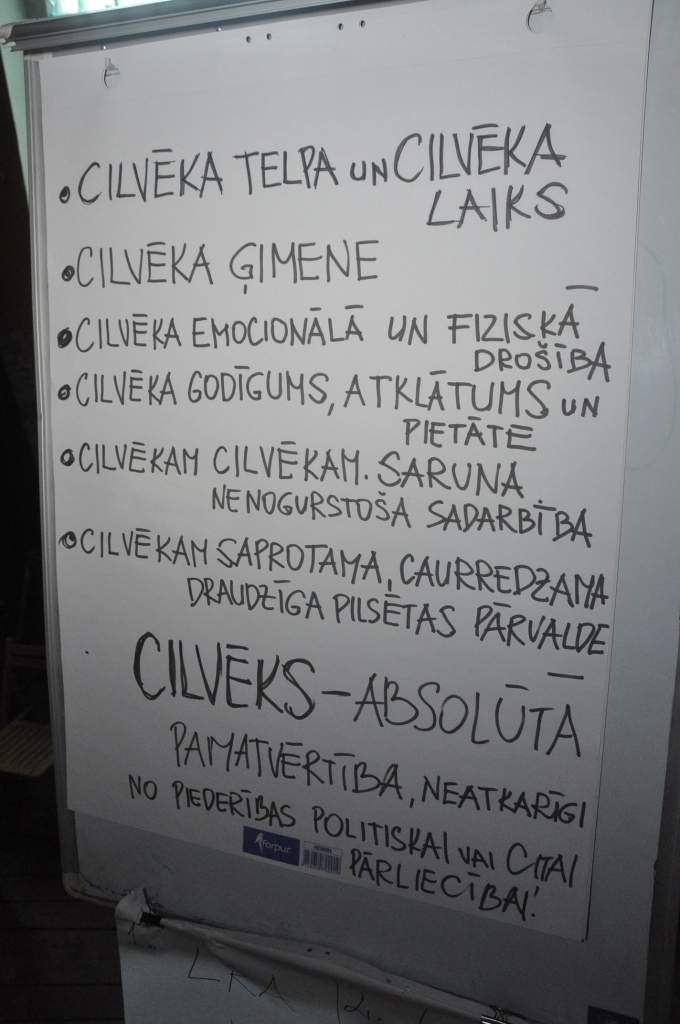 • CILVĒKA TELPA UN CILVĒKA
LAIKS
• CILVĒKA ĢIMENE
• CILVĒKA EMOCIONĀLĀ UN FIZISKĀ
DROŠĪBA
• CILVĒKA GODĪGUMS, ATKLĀTUMS UN
PIETĀTE
• CILVĒKAM CILVĒKAM. SARUNA.
NENOGURSTOŠA SADARBĪBA
• CILVĒKAM SAPROTAMA, CAURREDZAMA
DRAUDZĪGA PILSĒTAS PĀRVALDE
CILVĒKS – ABSOLŪTĀ
PAMATVĒRTĪBA, NEATKARĪGI
NO PIEDERĪBAS POLITISKAI VAI CITAI
PĀRLIECĪBAI!
Forpus